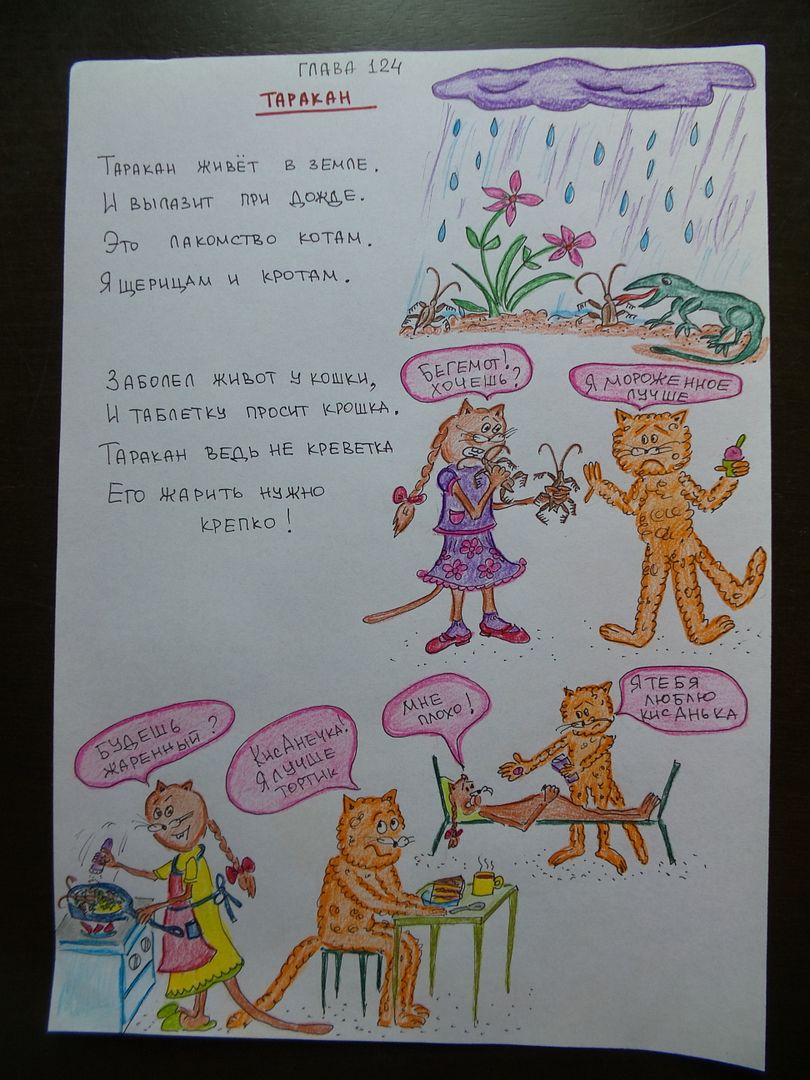 ГЛАВА 124
ТАРАКАН
ТАРАКАН ЖИВЁТ В ЗЕМЛЕ.
И ВЫЛАЗИТ ПРИ ДОЖДЕ.
ЭТО ЛАКОМСТВО КОТАМ.
ЯЩЕРИЦАМ И КРОТАМ.
ЗАБОЛЕЛ ЖИВОТ У КОШКИ,
И ТАБЛЕТКУ ПРОСИТ КРОШКА.
ТАРАКАН ВЕДЬ НЕ КРЕВЕТКА
ЕГО ЖАРИТЬ НУЖНО
КРЕПКО!
БЕГЕМОТ!
ХОЧЕШЬ?
Я МОРОЖЕННОЕ
ЛУЧШЕ
БУДЕШЬ
ЖАРЕННЫЙ?
КИСАНЕЧКА!
Я ЛУЧШЕ
ТОРТИК
МНЕ
ПЛОХО!
Я ТЕБЯ
ЛЮБЛЮ
КИСАНЬКА